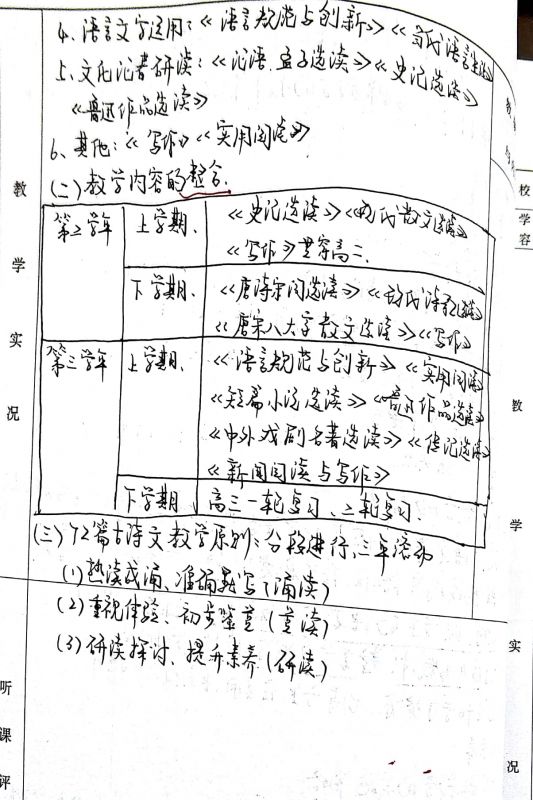 4、语言文字运用：《语言规范与创新》《当代语言生活》
5、文化论著研读：《论语、孟子选读》《史记选读》
《鲁迅作品选读》
6、其他：《写作》《实用阅读》
(二) 教学内容的整合.
第二学年 上学期、 《史记选读》《现代散文选读》
《写作》贯穿高二、
下学期、 《唐诗宋词选读》《现代诗歌选读》
《唐宋八大家散文选读》《写作》
第三学年 上学期、 《语言规范与创新》《实用阅读》
《短篇小说选读》《鲁迅作品选读》
《中外戏剧名著选读》《传记选读》
《新闻阅读与写作》
下学期 高三一轮复习、二轮复习.
(三) 72篇古诗文教学原则：分段进行、三年
(1) 熟读成诵、准确默写 (诵读)
(2) 重视体验、初步鉴赏 (赏读)
(3) 研读探讨、提升素养 (研读)
教
学
实
况
听
课
评
校
学
容
教
学
实
况